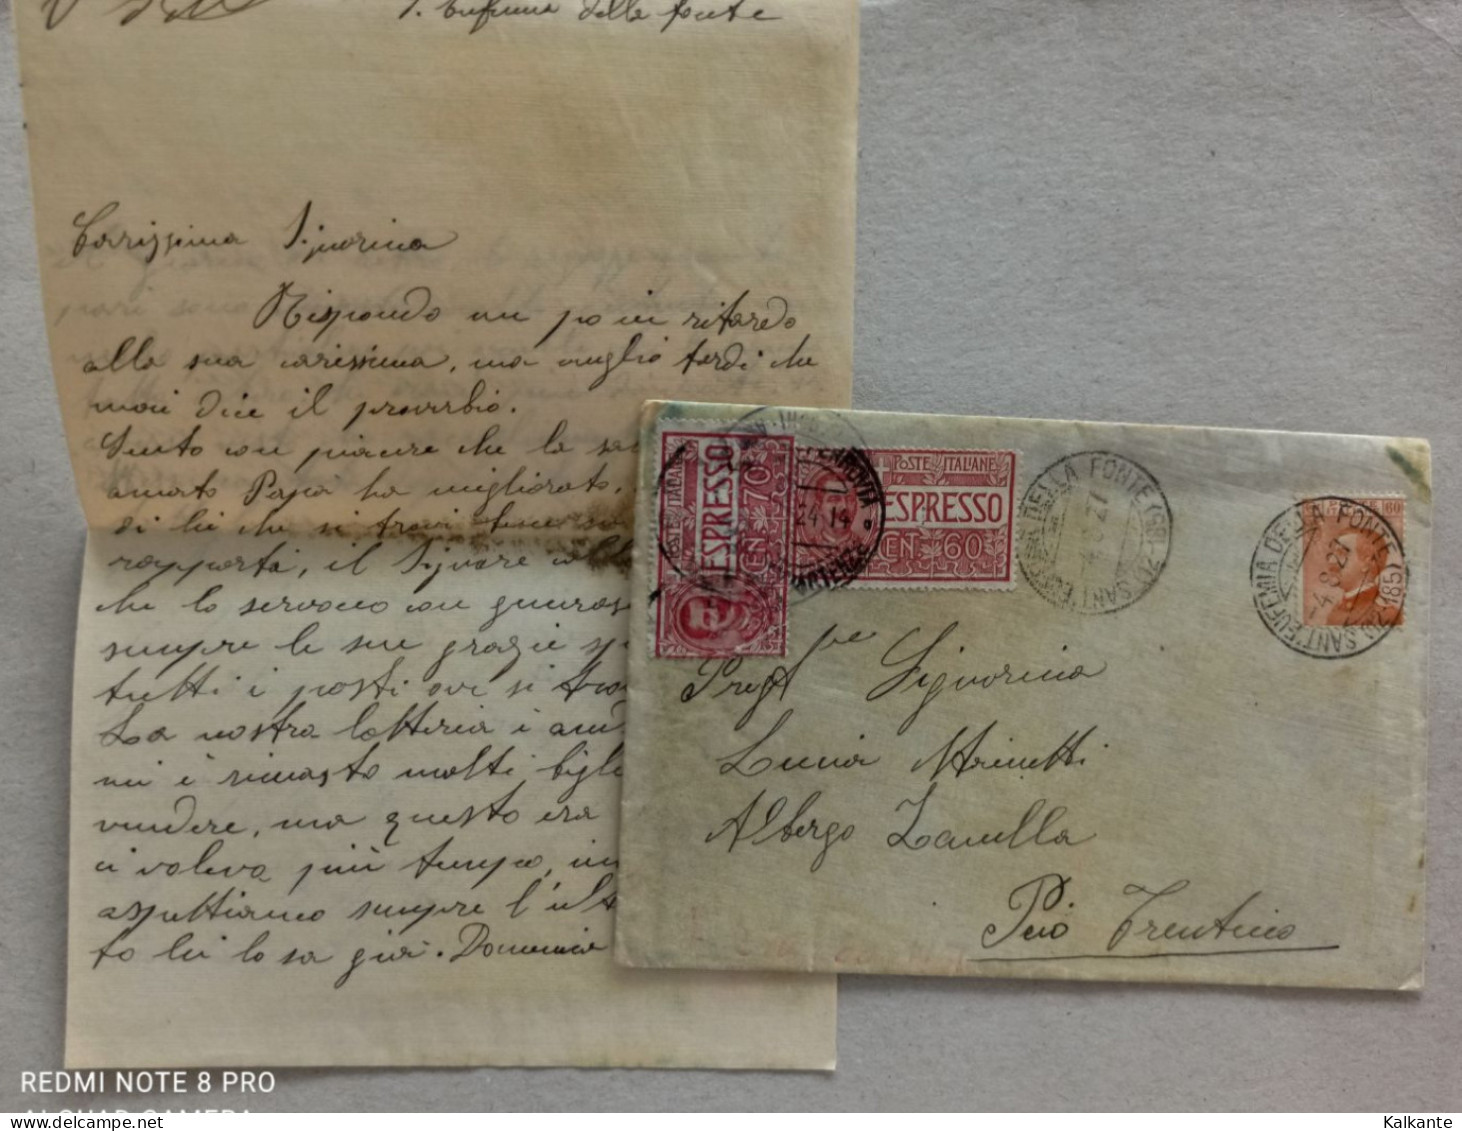 S. Eufemia della fonte
Carissima Signorina
Rispondo un po in ritardo
alla sua carissima, ma meglio tardi che
mai dice il proverbio.
Sento con piacere che lo
amato Papà ha migliorato,
di lei che si trovi bene
rapporta, il Signore
che lo servono con generos
sempre le sue grazie sp
tutti i posti ove si tro
La nostra lotteria è and
mi è rimasto molti bigl
vendere, ma questo era
ci voleva più tempo, in
aspettiamo sempre l'ult
to lei lo sa già. Domenica
POSTE ITALIANE
ESPRESSO
CEN 70
POSTE ITALIANE
ESPRESSO
CENT 60
FERROVIA
24.14
SANT'EUFEMIA DELLA FONTE (BRESCIA)
-4.8.27
60
SANT'EUFEMIA DELLA FONTE
-4.8.27
(185)
Preg. Signorina
Luccia Minetti
Albergo Zanella
Peio Trentino
REDMI NOTE 8 PRO
AI QUAD CAMERA
Kalkante